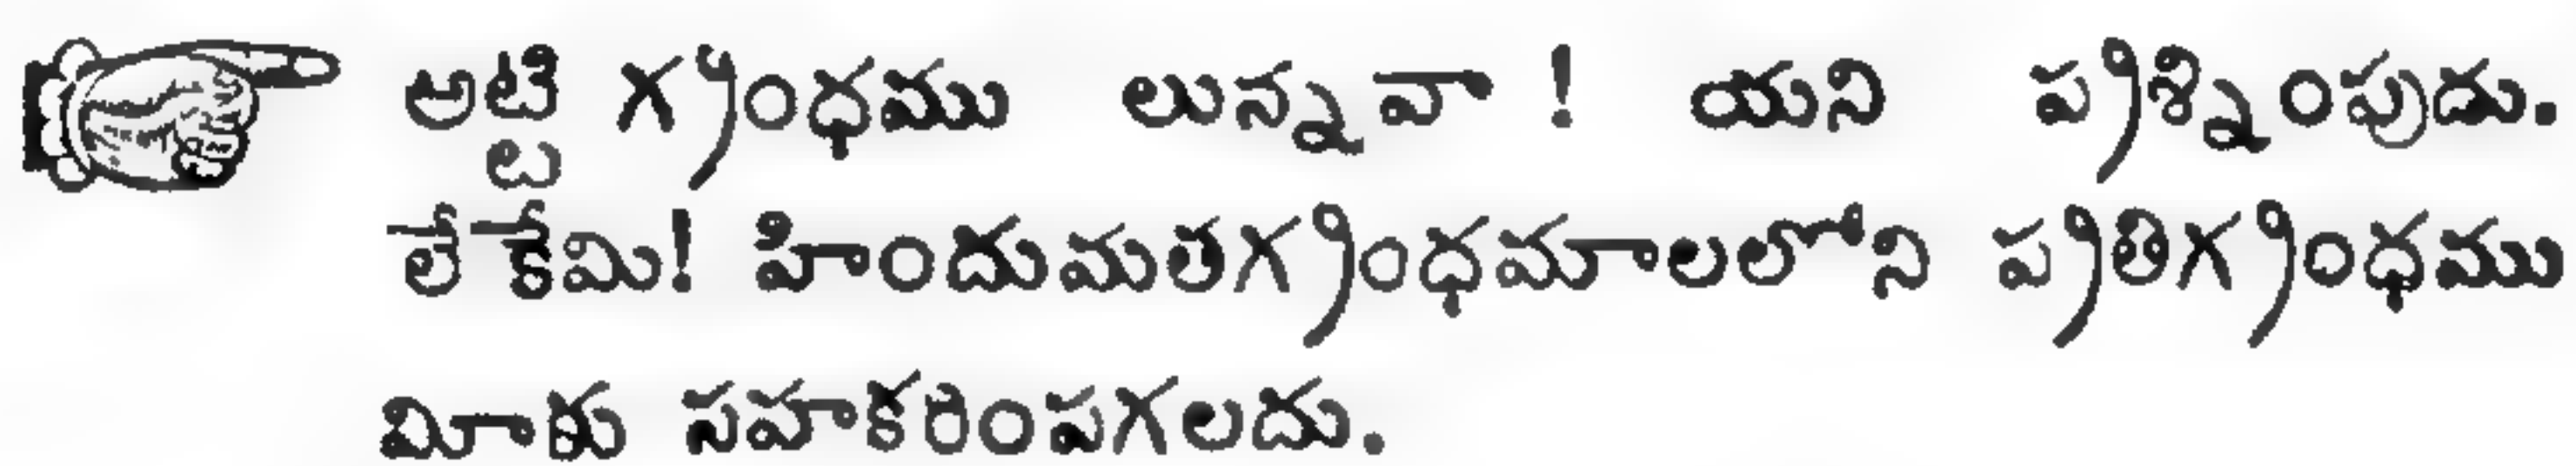 అట్టి గ్రంధము లున్నవా ! యని ప్రశ్నింపుదు.
లేకేమి! హిందుమతగ్రంధమాలలలోని ప్రతిగ్రంధము
మీకు సహకరింపగలదు.